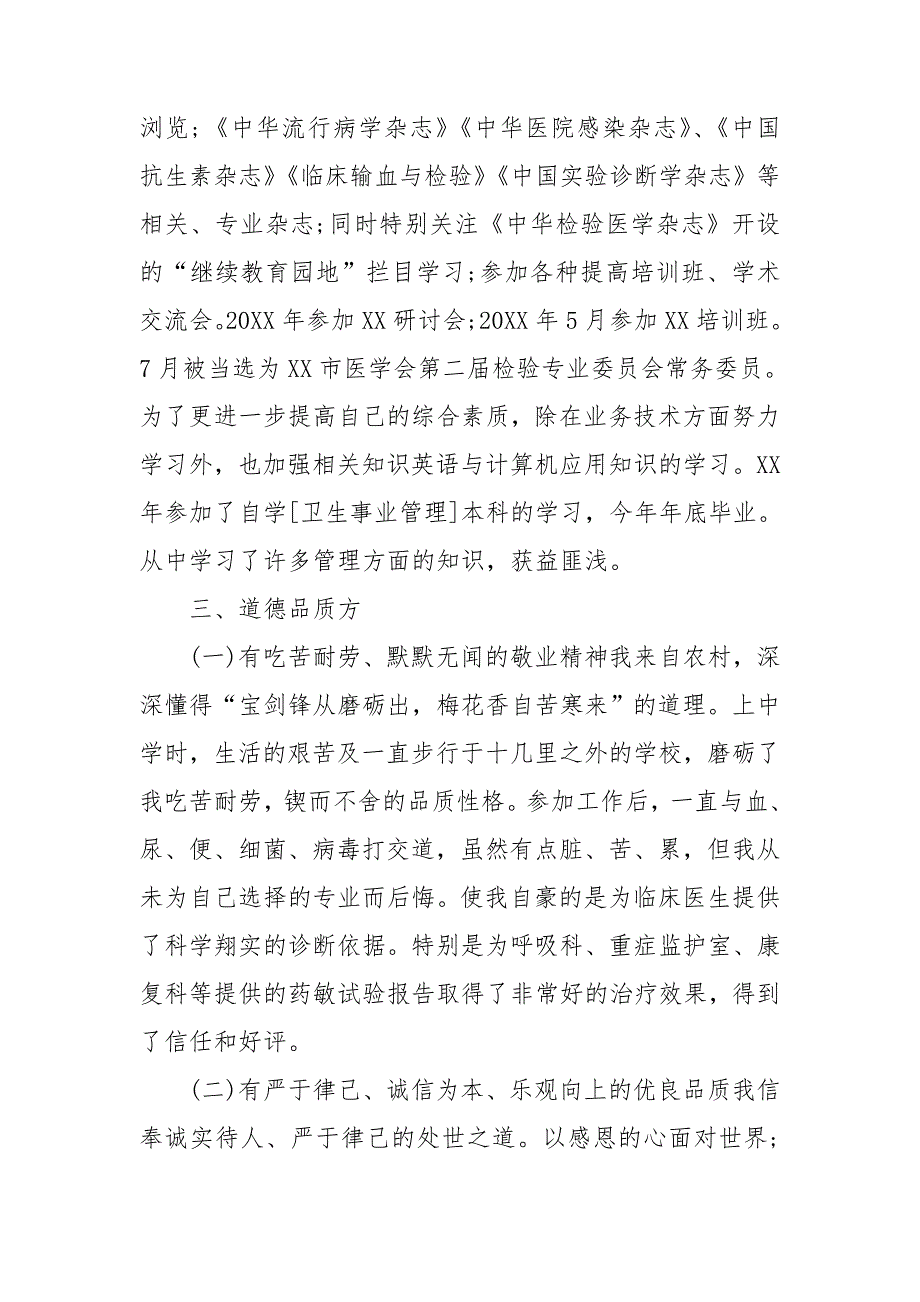 浏览;《中华流行病学杂志》《中华医院感染杂志》、《中国
抗生素杂志》《临床输血与检验》《中国实验诊断学杂志》等
相关、专业杂志;同时特别关注《中华检验医学杂志》开设
的“继续教育园地”拦目学习;参加各种提高培训班、学术
交流会。20XX 年参加 XX 研讨会;20XX 年 5 月参加 XX 培训班。
7 月被当选为 XX 市医学会第二届检验专业委员会常务委员。
为了更进一步提高自己的综合素质，除在业务技术方面努力
学习外，也加强相关知识英语与计算机应用知识的学习。XX
年参加了自学[卫生事业管理]本科的学习，今年年底毕业。
从中学习了许多管理方面的知识，获益匪浅。
三、道德品质方
(一)有吃苦耐劳、默默无闻的敬业精神我来自农村，深
深懂得“宝剑锋从磨砺出，梅花香自苦寒来”的道理。上中
学时，生活的艰苦及一直步行于十几里之外的学校，磨砺了
我吃苦耐劳，锲而不舍的品质性格。参加工作后，一直与血、
尿、便、细菌、病毒打交道，虽然有点脏、苦、累，但我从
未为自己选择的专业而后悔。使我自豪的是为临床医生提供
了科学翔实的诊断依据。特别是为呼吸科、重症监护室、康
复科等提供的药敏试验报告取得了非常好的治疗效果，得到
了信任和好评。
(二)有严于律己、诚信为本、乐观向上的优良品质我信
奉诚实待人、严于律己的处世之道。以感恩的心面对世界;